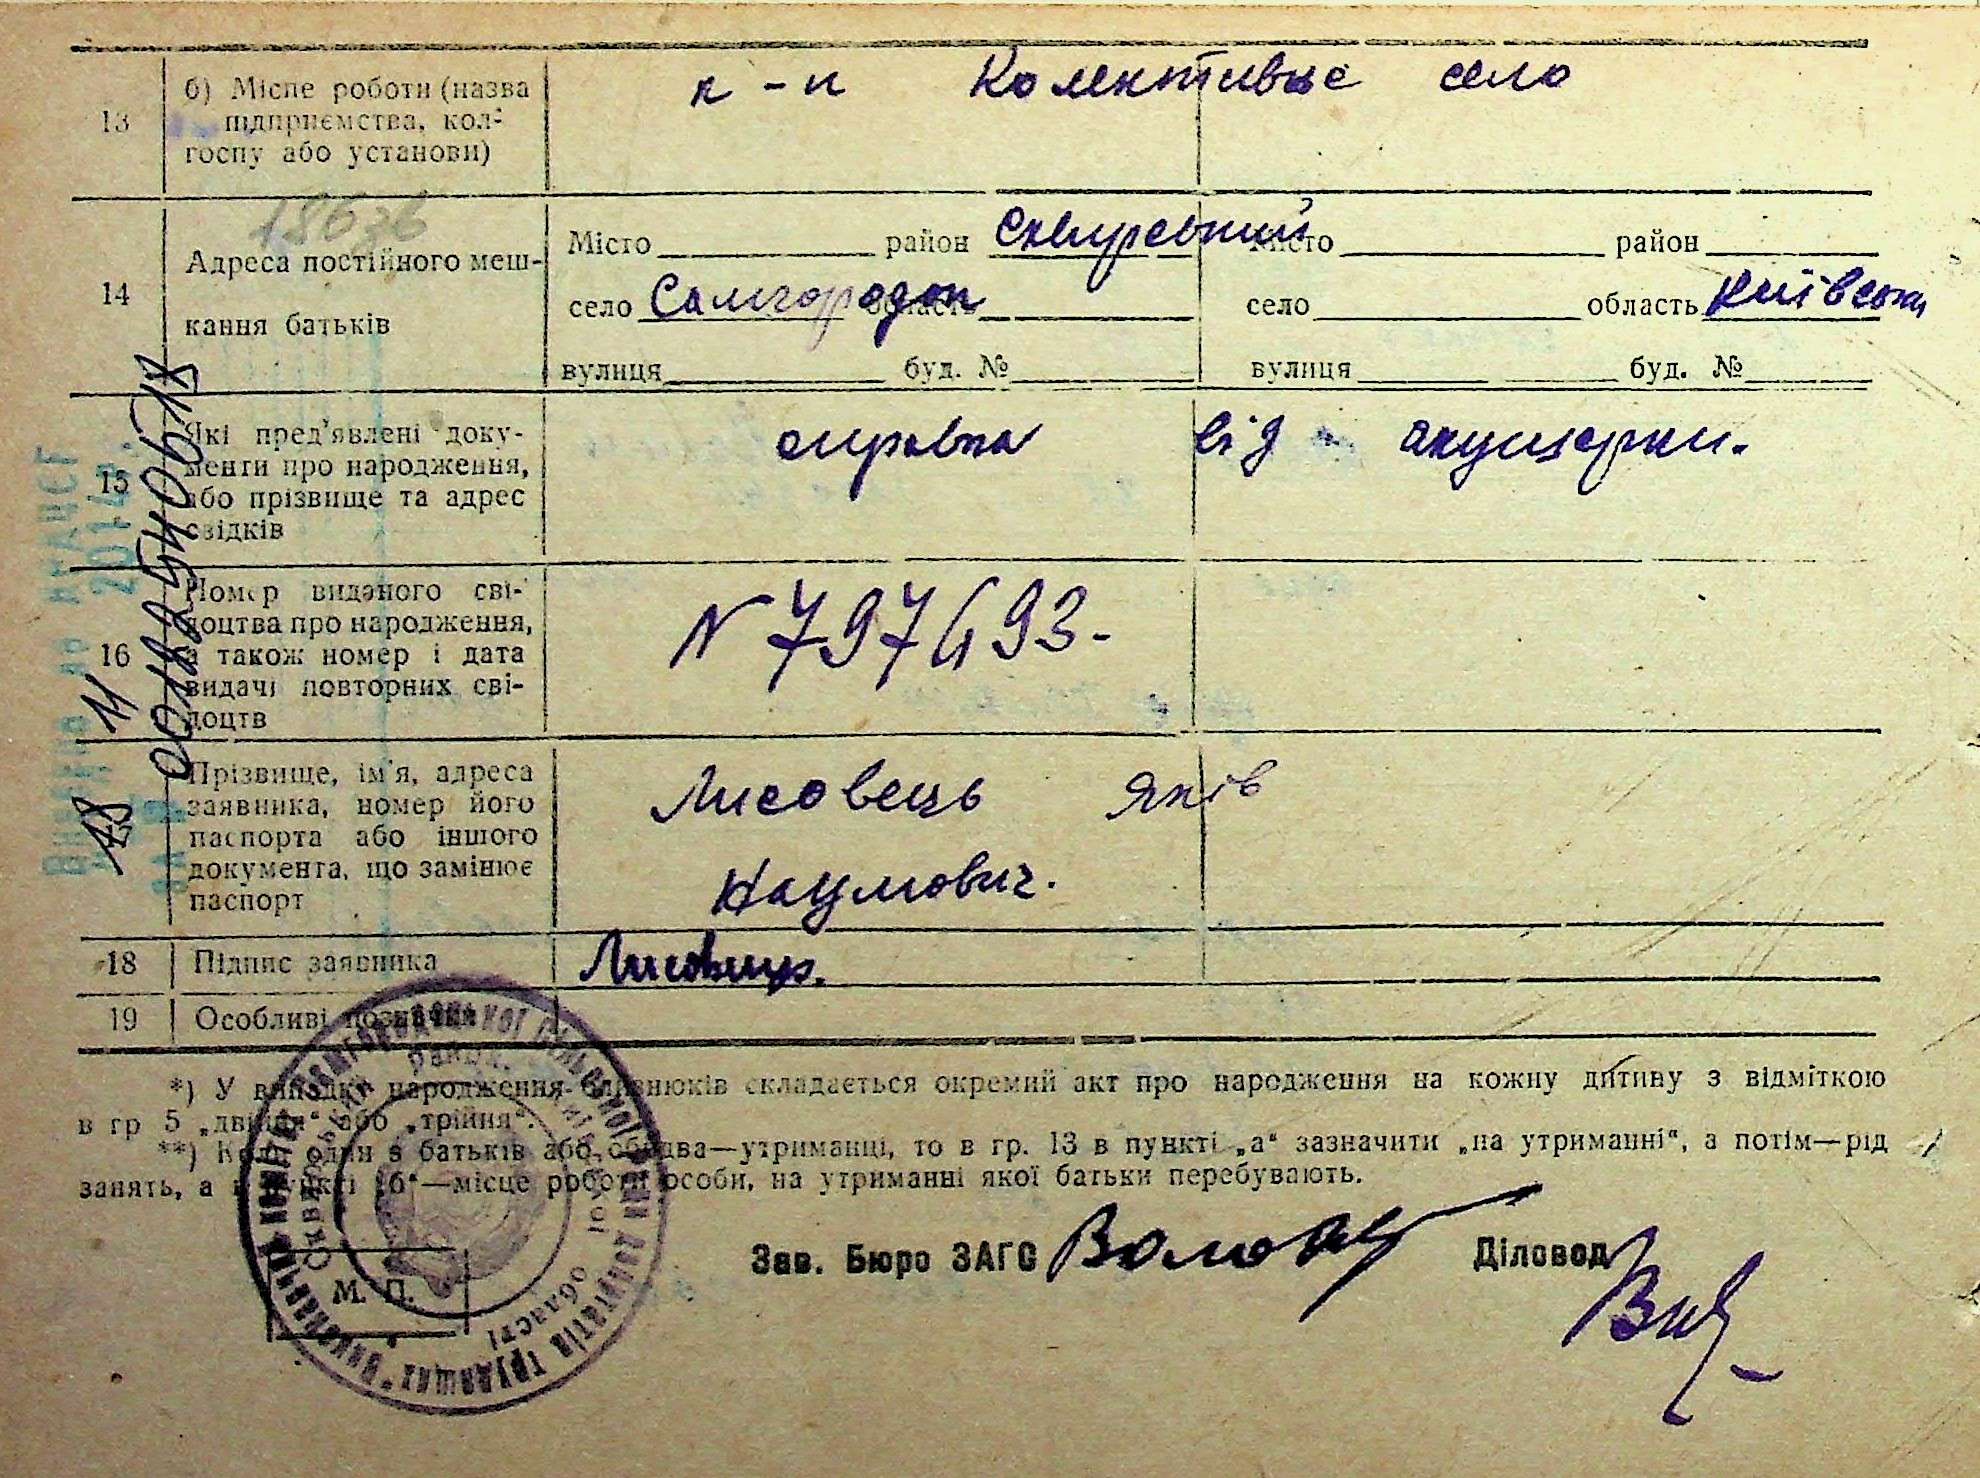 13 б) Місце роботи (назва підприємства, кол-
госпу або установи)
к-п Колективне село
14 Адреса постійного меш-
кання батьків
Місто район Сквирський
Місто район
село Самгородок область
село область Київська
вулиця буд. №
вулиця буд. №
15 Які пред'явлені доку-
менти про народження,
або прізвище та адрес
свідків
справка від акушерки.
16 Номер виданого сві-
доцтва про народження,
а також номер і дата
видачі повторних сві-
доцтв
N 797493-
Прізвище, ім'я, адреса
заявника, номер його
паспорта або іншого
документа, що замінює
паспорт
Лисовець Яків
Наумович.
18 Підпис заявника
19 Особливі позначки
*) У випадку народження близнюків складається окремий акт про народження на кожну дитину з відміткою
в гр 5 „двійня“ або „трійня“.
**) Коли один з батьків або обидва—утриманці, то в гр. 13 в пункті „а“ зазначити „на утриманні“, а потім—рід
занять, а в пункті „б“—місце роботи особи, на утриманні якої батьки перебувають.
Зав. Бюро ЗАГС
Діловод
М. П.